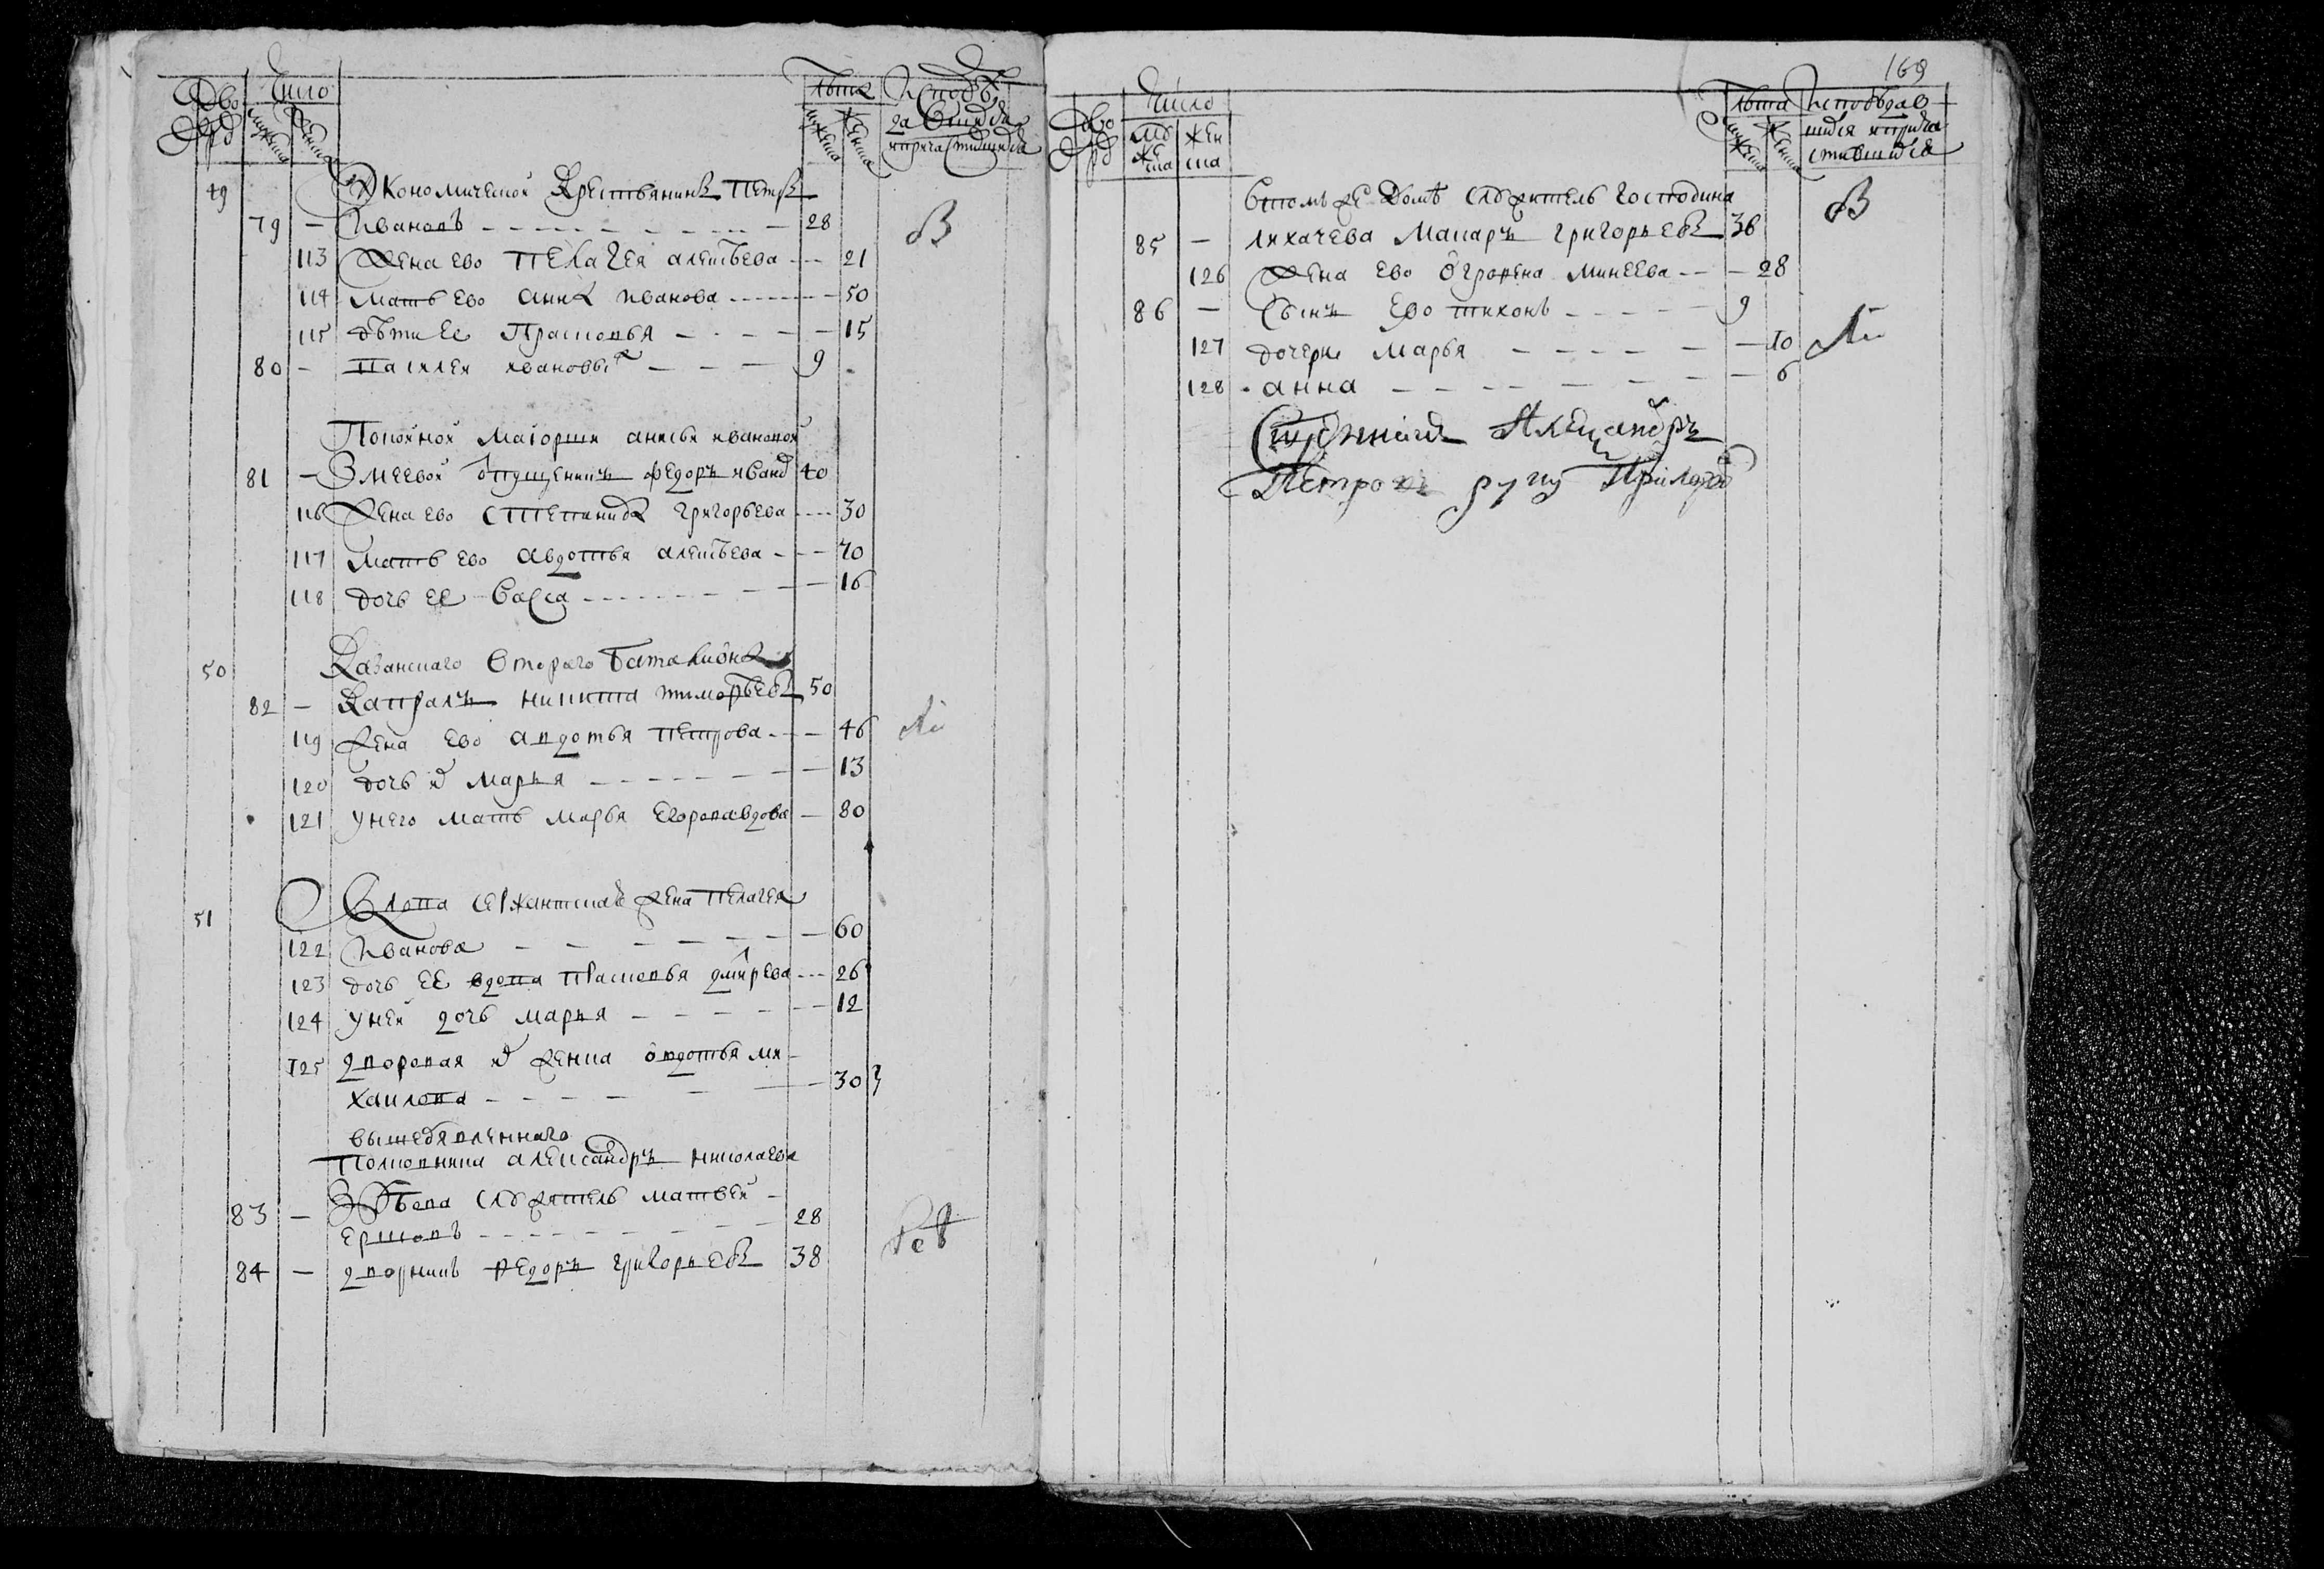 Дво
ры
Число
мужеска
женска
лѣта
мужеска
женска
исповѣ
давшихся
и причастившихся
49 Экономической крестьянинъ Петръ
79 — Ивановъ — 28
113 жена ево Пелагея алексѣева — 21
114 мать ево анна иванова — 50
115 дѣти ее Прасковья — 15
80 — ивановы — 9
В
Покойной маіорши анисьи ивановой
81 — Змеевой отпущенникъ федоръ ивано 40
116 жена ево степанида григорьева — 30
117 мать ево авдотья алексѣева — 70
118 дочь ее васса — 16
50 Казанскаго втораго баталиона
82 — Капралъ никита тимофѣевъ 50
119 жена ево авдотья петрова — 46
120 дочь их марья — 13
121 у него мать марья егорова вдова — 80
51 Вдова сержантская жена пелагея
122 Иванова — 60
123 дочь ее вдова прасковья дмитрева — 26
124 у ней дочь марья — 12
125 дворовая их женка овдотья ми
хаилова — 30
вышеявленнаго
Полковника александръ николаева
83 — служитель матвей
ершовъ — 28
84 — дворникъ федоръ григорьевъ 38
169
Дво
ры
Число
му
же
ска
жен
ска
лѣта
мужеска
женска
исповѣдав
шихся и прича
стившихся
В том же доме служитель господина
85 — лихачева макаръ григорьевъ 36
В
126 жена ево огрофена минеева — 28
86 — сынъ ево тихонъ — 9
127 дочери марья — 10
128 анна — 6
Священникъ Александръ
Петровъ руку приложил